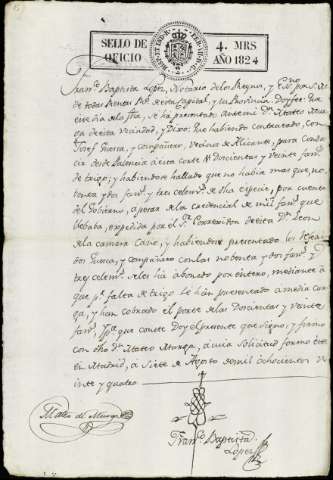 SELLO DE OFICIO 4. MRS AÑO 1824
Fran.co Baptista Lopez, Notario de los Reynos, y
de todas Rentas R.s de esta Capital, y su Provincia Doy fee: Que
este dia de la fha, se ha presentado ante mi D.n Mateo Murga
de esta Vecindad, y Dixo: Que habiendo contratado, con
Josef Garcia, y compañero, Vecinos de Alicante, para Condu
cia desde Valencia á esta Corte Docientas y Veinte fan.s
de trigo; y habiendose hallado que no habia mas que no
benta y dos fan.s y tres celem.s de dha especie, por cuenta
del Gobierno, apesar de la credencial de mil fan.s que
llebaba, expedida por el S.r Corregidor de esta D.n Leon
de la Camara Cano, y habiendose presentado los
dos Garcia, y compañero con las nobenta y dos fan.s y
tres celem.s se les ha abonado por entero, mediante á
que p.r falta de trigo le han presentado a media car
ga, y han cobrado el porte de las Docientas y veinte
fan.s, Y p.a que conste Doy el presente que signo, y firmo
con dho D.n Mateo Murga, á cuia Solicitud formo este
en Madrid, a Siete de Agosto de mil ochocientos ve
inte y quatro
Mateo de Murga
Fran.co Baptista
Lopez